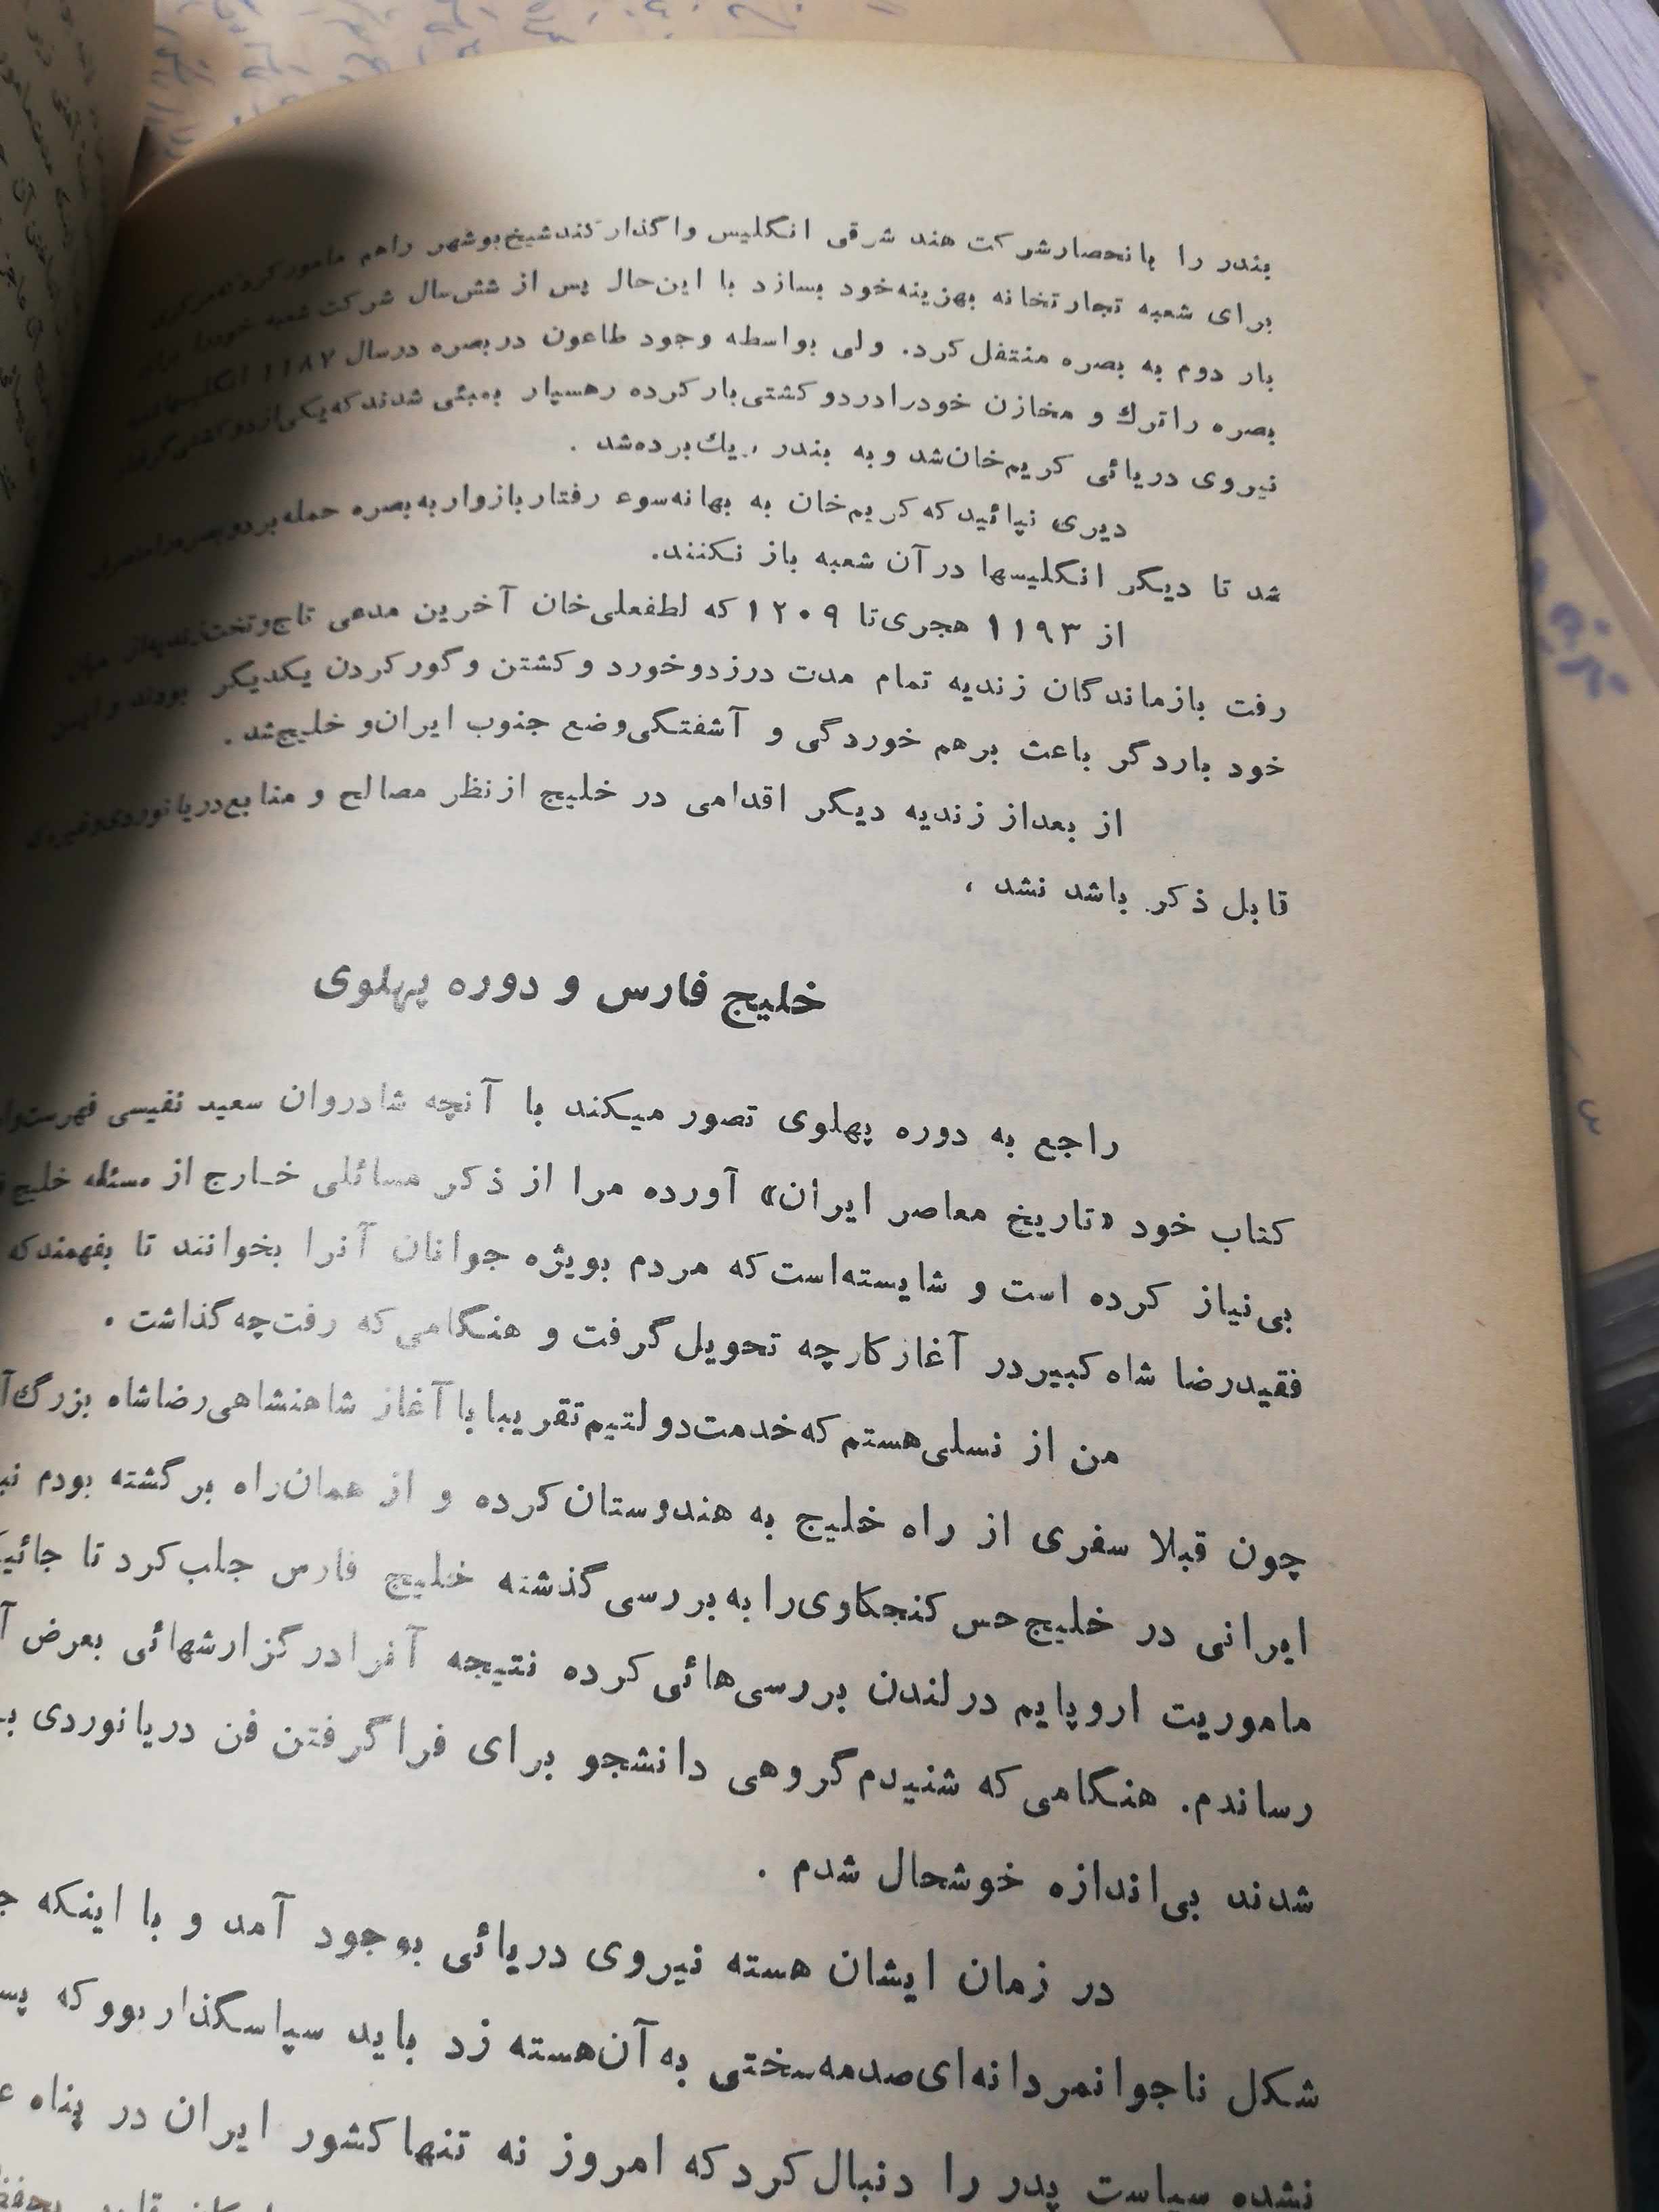 بندر را بانحصار شرکت هند شرقی انگلیس واگذار کند شیخ بوشهر راهم مامور کرد
برای شعبه تجارتخانه بهزینه خود بسازد با این حال پس از شش سال شرکت شعبه خود را
بار دوم به بصره منتقل کرد. ولی بواسطه وجود طاعون در بصره در سال ۱۱۸۷ انگلیسها
بصره را ترك و مخازن خود را در دو کشتی بار کرده رهسپار بمبئی شدند که یکی از دو
نیروی دریائی کریم خان شد و به بندر ریك برده شد .
دیری نپائید که کریم خان به بهانه سوء رفتار با زوار به بصره حمله برد و بصره را
شد تا دیگر انگلیسها در آن شعبه باز نکنند.
از ۱۱۹۳ هجری تا ۱۲۰۹ که لطفعلی خان آخرین مدعی تاج و تخت زندیه از
رفت بازماندگان زندیه تمام مدت در زد و خورد و کشتن و گور کردن یکدیگر بودند و این
خود باردگر باعث برهم خوردگی و آشفتگی وضع جنوب ایران و خلیج شد .
از بعد از زندیه دیگر اقدامی در خلیج از نظر مصالح و منابع دریانوردی و غیره که
قابل ذکر باشد نشد ،
خلیج فارس و دوره پهلوی
راجع به دوره پهلوی تصور میکند با آنچه شادروان سعید نفیسی فهرست
کتاب خود «تاریخ معاصر ایران» آورده مرا از ذکر مسائلی خارج از مسئله خلیج
بی نیاز کرده است و شایسته است که مردم بویژه جوانان آنرا بخوانند تا بفهمند که
فقید رضا شاه کبیر در آغاز کار چه تحویل گرفت و هنگامی که رفت چه گذاشت .
من از نسلی هستم که خدمت دولتیم تقریبا با آغاز شاهنشاهی رضاشاه بزرگ
چون قبلا سفری از راه خلیج به هندوستان کرده و از همان راه برگشته بودم
ایرانی در خلیج حس کنجکاوی را به بررسی گذشته خلیج فارس جلب کرد تا
ماموریت اروپایم در لندن بررسی هائی کرده نتیجه آنرا در گزارشهائی بعرض
رساندم. هنگامی که شنیدم گروهی دانشجو برای فرا گرفتن فن دریانوردی
شدند بی اندازه خوشحال شدم .
در زمان ایشان هسته نیروی دریائی بوجود آمد و با اینکه
شکل ناجوانمردانه ای صدمه سختی به آن هسته زد باید سپاسگذار بوو که
نشده سیاست پدر را دنبال کرد که امروز نه تنها کشور ایران در پناه